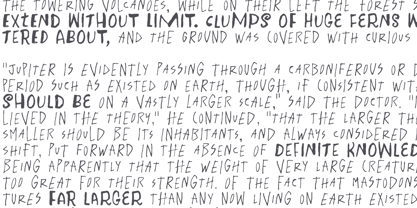 THE TOWERING VOLCANOES, WHILE ON THEIR LEFT THE FOREST S
EXTEND WITHOUT LIMIT. CLUMPS OF HUGE FERNS W
TERED ABOUT, AND THE GROUND WAS COVERED WITH CURIOUS
"JUPITER IS EVIDENTLY PASSING THROUGH A CARBONIFEROUS OR D
PERIOD SUCH AS EXISTED ON EARTH, THOUGH, IF CONSISTENT WIT
SHOULD BE ON A VASTLY LARGER SCALE," SAID THE DOCTOR. "I
LIEVED IN THE THEORY," HE CONTINUED, "THAT THE LARGER TH
SMALLER SHOULD BE ITS INHABITANTS, AND ALWAYS CONSIDERED I
SHIFT, PUT FORWARD IN THE ABSENCE OF DEFINITE KNOWLED
BEING APPARENTLY THAT THE WEIGHT OF VERY LARGE CREATUR
TOO GREAT FOR THEIR STRENGTH. OF THE FACT THAT MASTODONS
TURES FAR LARGER THAN ANY NOW LIVING ON EARTH EXISTED